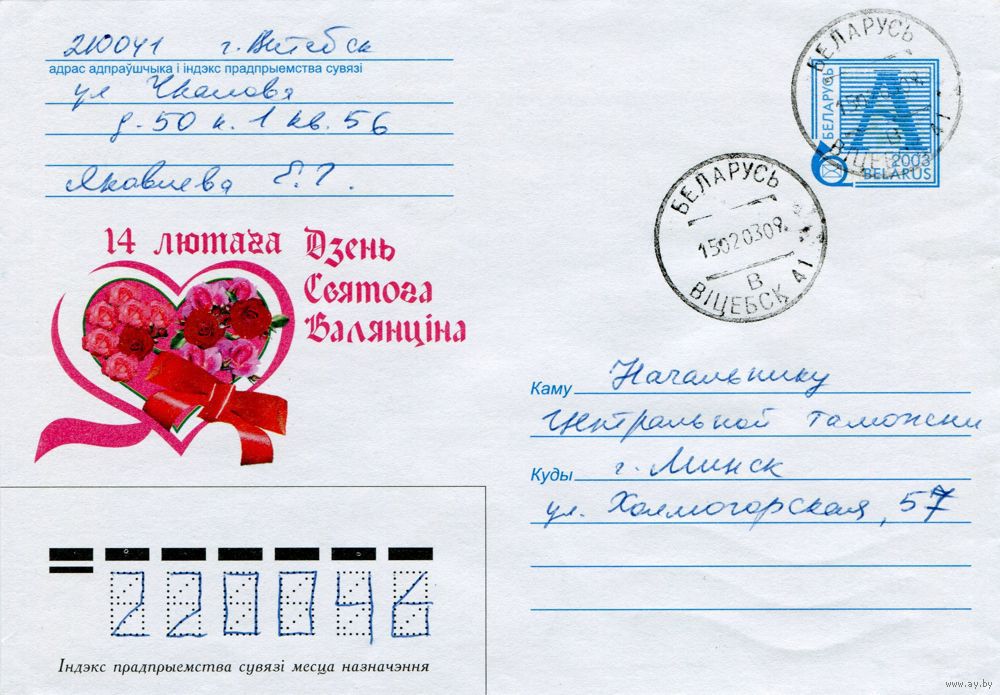 210041 г. Витебск
адрас адпраўшчыка і індэкс прадпрыемства сувязі
ул Чкалова
д-50 к. 1 кв. 56
Яковлева Е. Г.
14 лютага Дзень
Святога
Валянціна
БЕЛАРУСЬ
БЕЛАРУСЬ
А
2003
BELARUS
ВІЦЕБСК 41
БЕЛАРУСЬ
15020309
В
ВІЦЕБСК 41
Каму Начальнику
Центральной таможни
Куды г. Минск
ул. Холмогорская, 57
220046
Індэкс прадпрыемства сувязі месца назначэння
www.ay.by